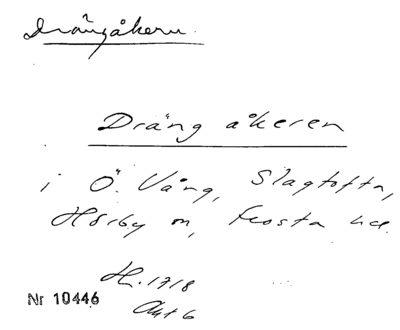 Drängåkern.
Dräng åkeren
i Ö. Vång, Slagtofta,
Hörby sn, Frosta hd.
H. 1718
Akt 6
Nr 10446